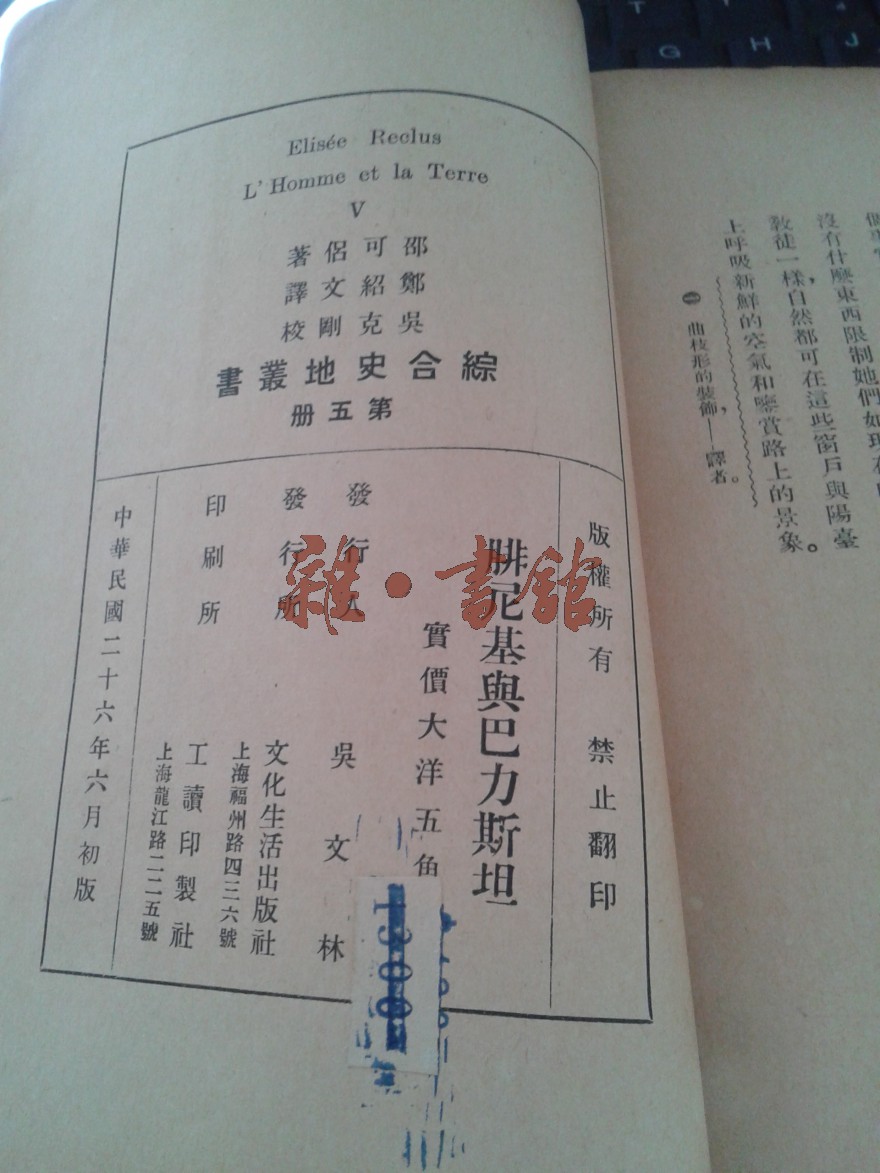 Elisée Reclus
L'Homme et la Terre
V
邵可侶著
鄭紹文譯
吳克剛校
綜合史地叢書
第五册
版權所有 禁止翻印
腓尼基與巴力斯坦
實價大洋五角
發行人 吳文林
發行所 文化生活出版社
上海福州路四三六號
印刷所 工讀印製社
上海龍江路二二五號
中華民國二十六年六月初版
雜·書館
1300
沒有什麼東西限制她們如現在
教徒一樣自然都可在這些窗戶與陽臺
上呼吸新鮮的空氣和鑒賞路上的景象。
㊀ 曲枝形的裝飾，——譯者。
G H J